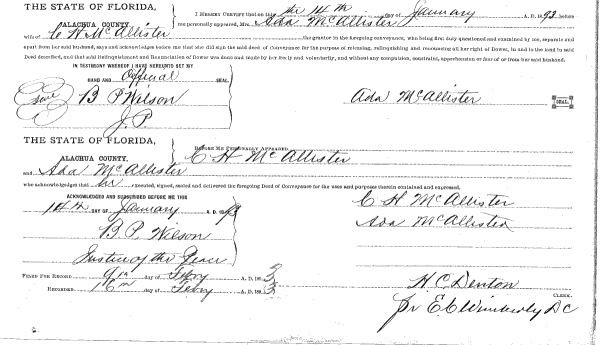 THE STATE OF FLORIDA,
ALACHUA COUNTY.
I HEREBY CERTIFY that on this the 14th day of January A. D. 1893 before
me personally appeared, Mrs. Ada McAllister
wife of C H McAllister the grantor in the foregoing conveyance, who being first duly questioned and examined by me, separate and
apart from her said husband, says and acknowledges before me that she did sign the said deed of Conveyance for the purpose of releasing, relinquishing and renouncing all her right of Dower, in and to the land in said
Deed described, and that said Relinquishment and Renunciation of Dower was done and made by her freely and voluntarily, and without any compulsion, constraint, apprehension or fear of or from her said husband.
IN TESTIMONY WHEREOF I HAVE HEREUNTO SET MY
HAND AND Official SEAL
B P Wilson
J. P.
Ada McAllister
SEAL
THE STATE OF FLORIDA,
ALACHUA COUNTY.
BEFORE ME PERSONALLY APPEARED
C H McAllister
and Ada McAllister
who acknowledged that executed, signed, sealed and delivered the foregoing Deed of Conveyance for the uses and purposes therein contained and expressed.
ACKNOWLEDGED AND SUBSCRIBED BEFORE ME THIS
14th DAY OF January A. D. 1893
B. P. Wilson
Justice of the Peace
C H McAllister
Ada McAllister
FILED FOR RECORD 9th day of Feby A. D. 1893
RECORDED 16th day of Feby A. D. 1893
H. C. Denton
CLERK.
Pr E. C Wimberly DC